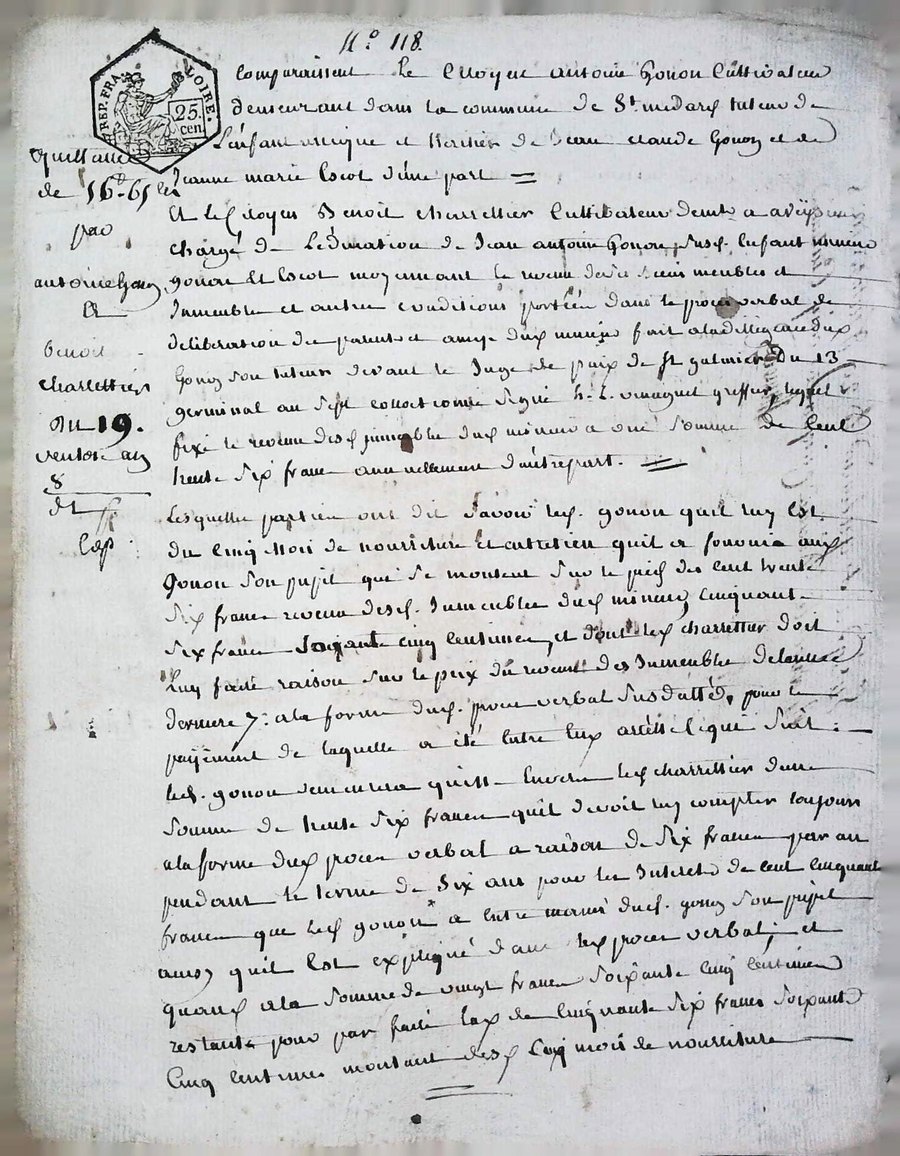 N.° 118.
REP. FRA
LOIRE.
25. cen.
quittance
de 56.# 65 c.
par
antoine Gonon
et
benoit
charrettier
Du 19.
ventose an
8
Exp.
Comparaissent le Citoyen antoine Gonon Cultivateur
demeurant dans la commune de St medard tuteur de
L'enfant unique et heritier de Jean claude Gonon et de
Jeanne marie Escot d'une part =
Et le Citoyen Benoit charrettier Cultivateur demt a
chargé de L'éducation de Jean antoine Gonon, susd. Enfant mineur
gonon Et Escot moyennant le revenu de ses biens meubles et
Immeubles et autres conditions portées dans le proces verbal de
deliberation des parents et amys dud. mineur fait a la diligence dud.
Gonon son tuteur devant le Juge de paix de st galmier du 13
germinal an sept signé greffier, lequel
fixe le revenu desd. immeubles dud. mineur a une somme de Cent
trente six francs annuellement d'autre part. =
Lesquelles parties ont dit savoir led. gonon qu'il luy est
du cinq mois de nourriture et entretien qu'il a fournis aud.
Gonon son pupil que se montent sur le pied des cent trente
six francs revenu desd. Immeubles dud. mineur, cinquante
six francs soixante cinq centimes, et dont led. charrettier doit
Luy faire raison sur le prix du revenu des Immeubles de l'année
derniere 7.e a la forme dud. proces verbal susdatté, pour le
payement de laquelle a été Entre Eux arrété ce qui suit : —
led. gonon demeurera quitte Envers led. charrettier d'une
somme de trente six francs qu'il devoit luy compter toujours
a la forme dud. proces verbal a raison de six francs par an
pendant le terme de six ans pour les Interets de cent cinquante
francs que led. gonon a entre mains dud. gonon son pupil
ainsy qu'il est expliqué dans led. proces verbal; et
quand a la somme de vingt francs soixante cinq centimes
restante pour par faire de Cinquante six francs soixante
Cinq centimes montant desd. cinq mois de nourriture